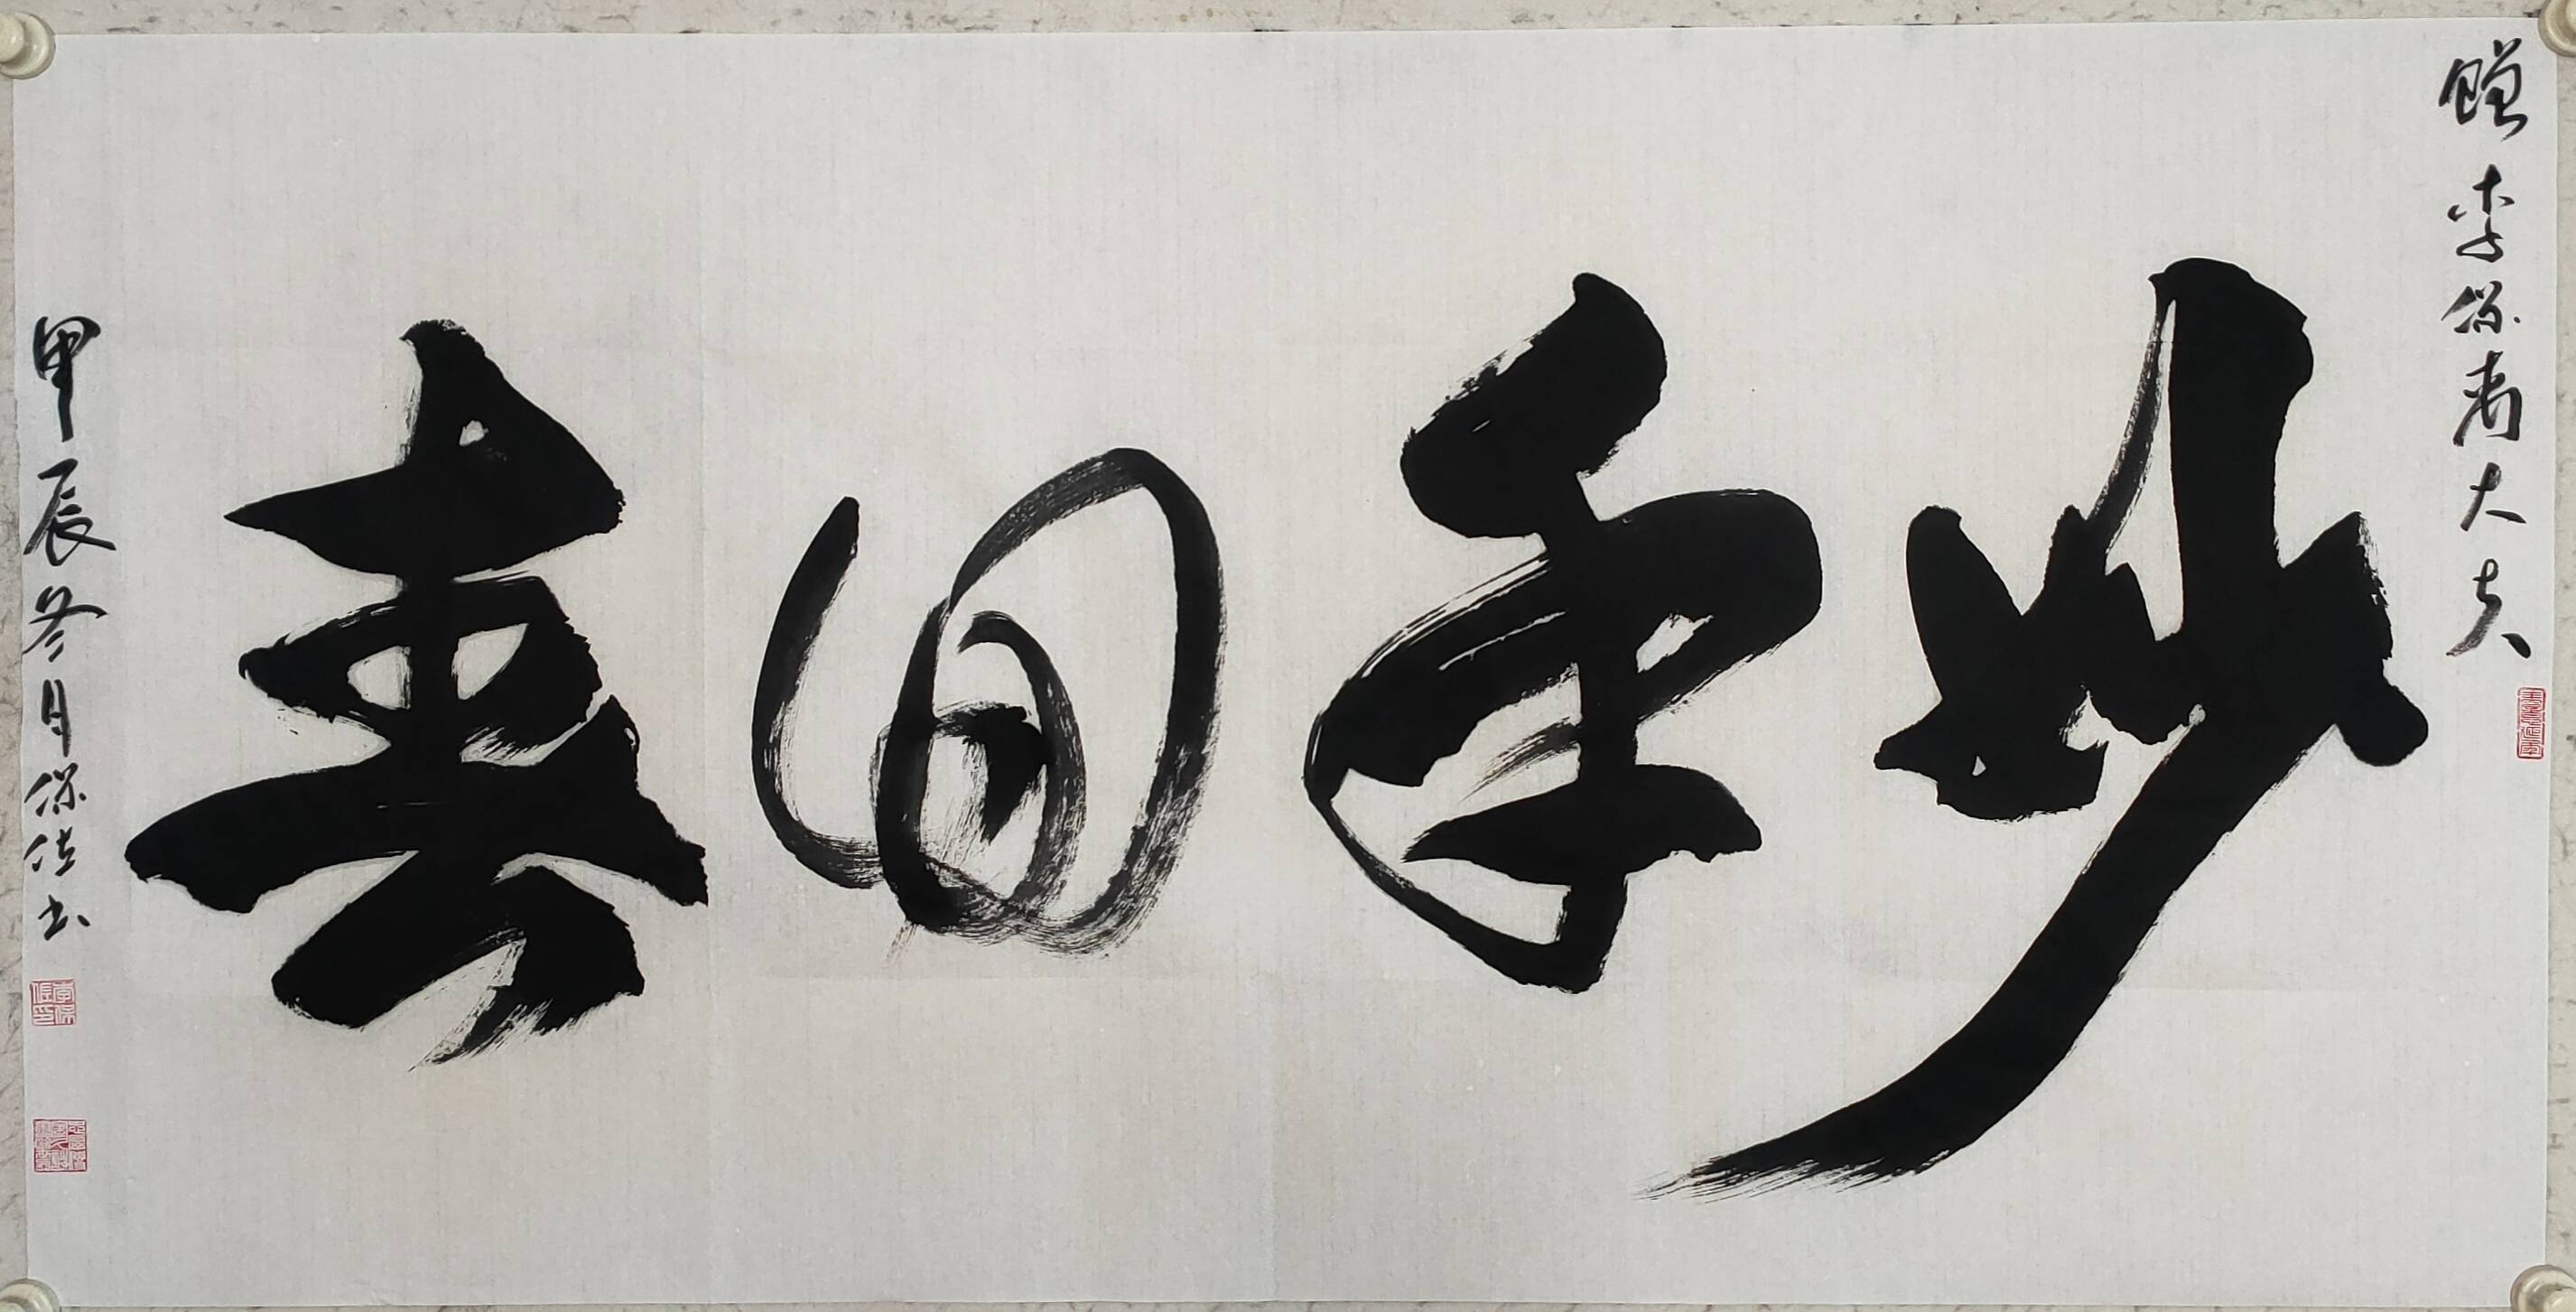 赠李保青大夫
妙手回春
甲辰冬月保佐书